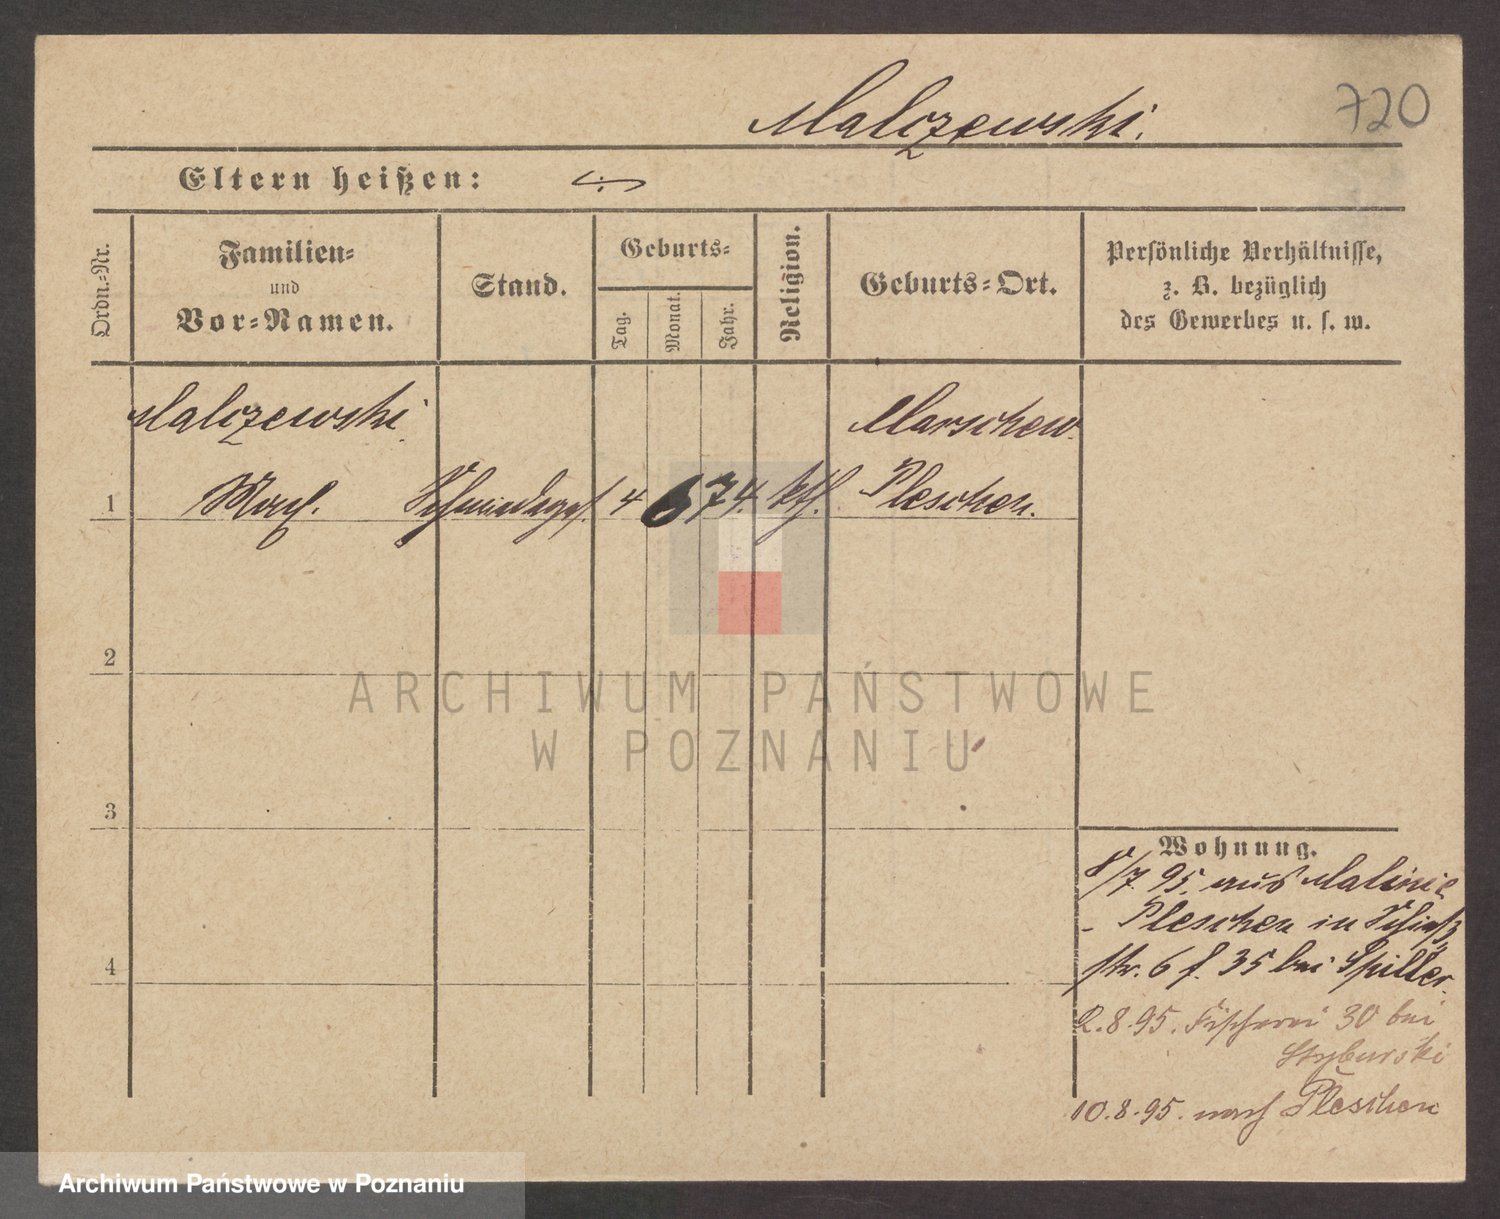 Malczewski.
720
Eltern heißen:
Ordn.-Nr.
Familien-
und
Vor-Namen.
Stand.
Geburts-
Tag.
Monat.
Jahr.
Religion.
Geburts-Ort.
Persönliche Verhältnisse,
z. B. bezüglich
des Gewerbes u. s. w.
Malczewski
Marschew.
1 Schmiedeges. 4 6 74. kth. Pleschen.
2
3
4
Wohnung.
8/7 95. aus Malinie
- Pleschen in Schieß
str. 6 f. 35 bei Spiller.
2.8.95. Fischerei 30 bei
10.8.95. nach Pleschen
ARCHIWUM PAŃSTWOWE
W POZNANIU
Archiwum Państwowe w Poznaniu